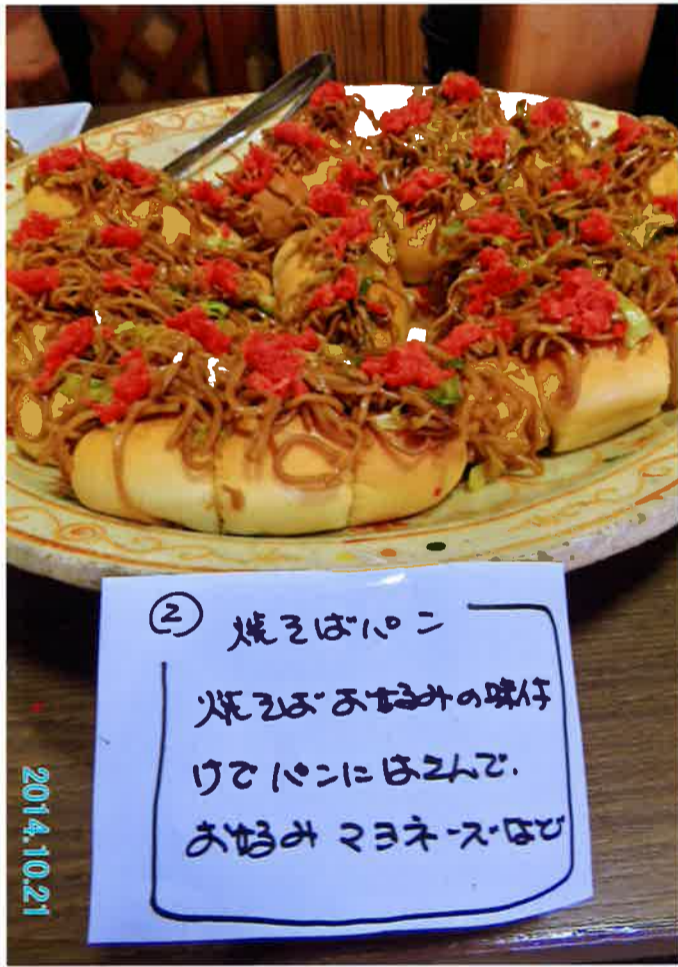 ② 焼そばパン
焼そばお好みの味付
けでパンにはさんで、
お好みマヨネーズなど
2014.10.21